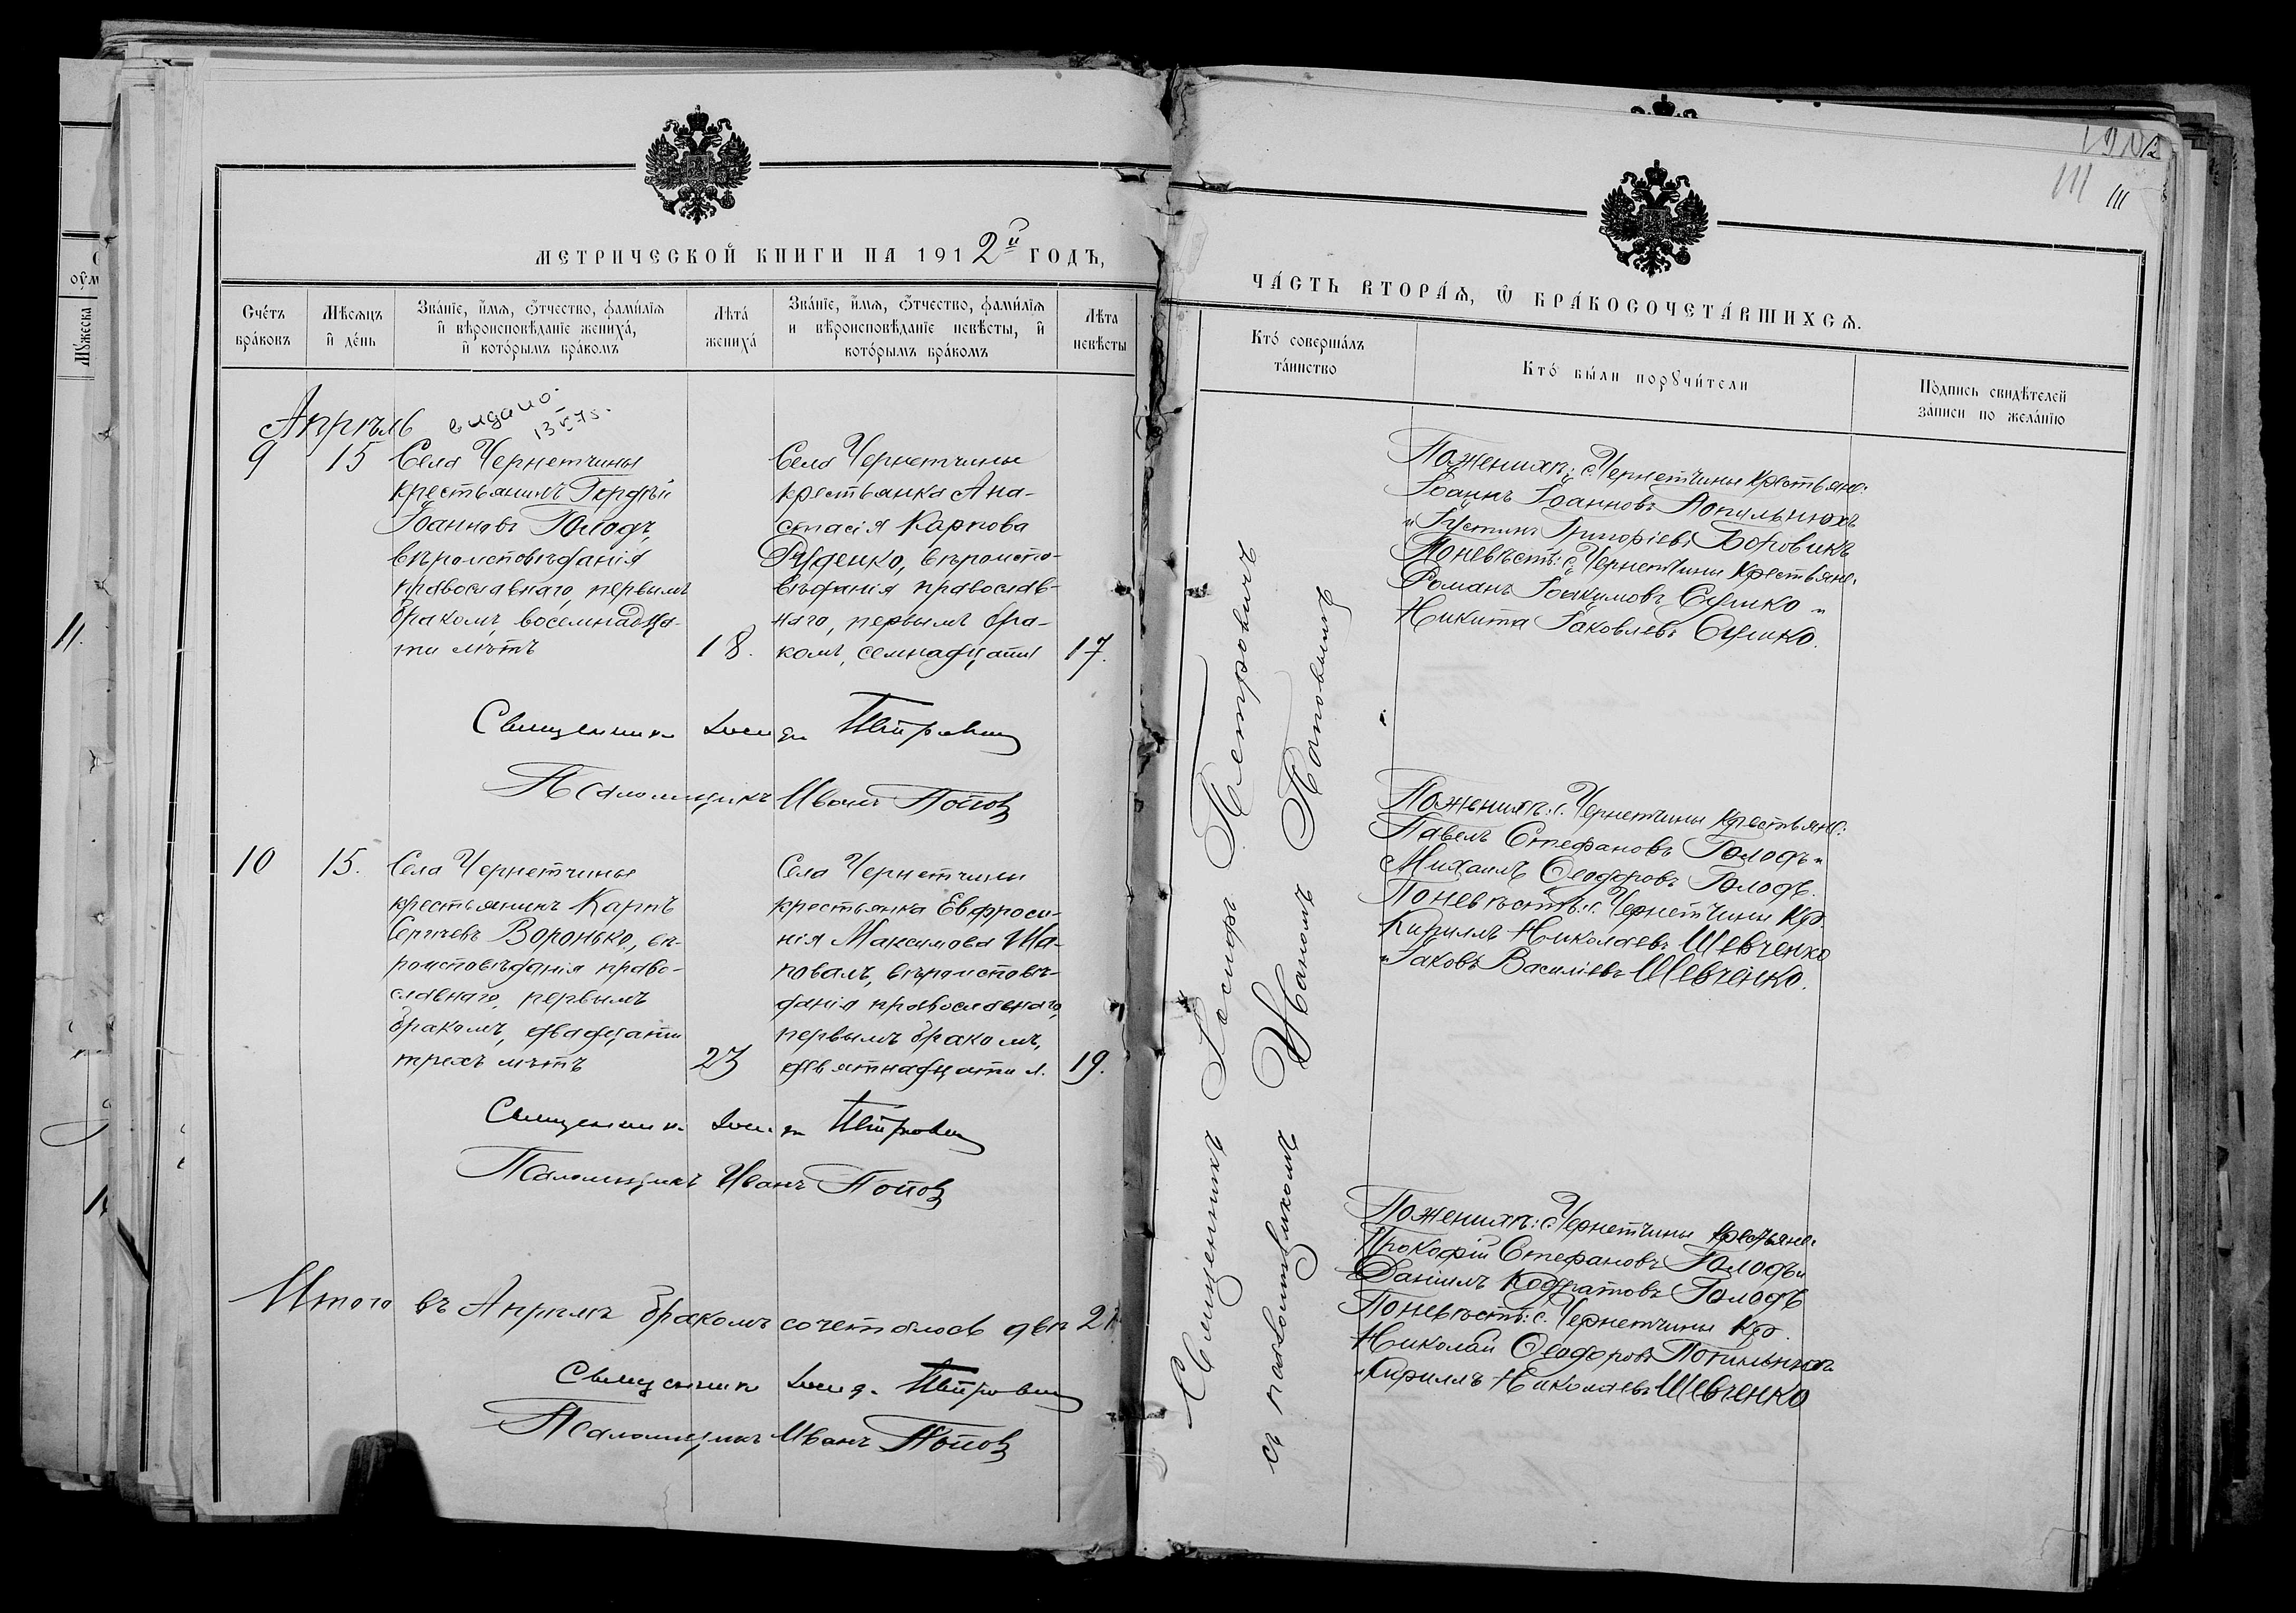 МЕТРИЧЕСКОЙ КНИГИ НА 1912й ГОДЪ,
Сче́тъ бра́ковъ
Мѣсяцъ и҆ де́нь
Зва́нїе, и҆́мѧ, ѻ҆́тчество, фами́лїѧ и҆ вѣроисповѣ́данїе жениха́, и҆ кото́рымъ бра́комъ
Лѣта́ жениха́
Зва́нїе, и҆́мѧ, ѻ҆́тчество, фами́лїѧ и вѣроисповѣ́данїе невѣ́сты, и҆ кото́рымъ бра́комъ
Лѣта невѣ́сты
Апрѣль
видано
9
15
Села Чернетчины
крестьянинъ Гордѣй
Іоанновъ Голодъ,
вѣроисповѣданія
православнаго, первымъ
бракомъ, восемнадца-
ти лѣтъ
18.
Села Чернетчины
крестьянка Ана-
стасія Карпова
Руденко, вѣроиспо-
вѣданія православ-
наго, первымъ бра-
комъ, семнадцати
17.
Священникъ Іосифъ Петровичъ
Псаломщикъ Иванъ Поповъ
10
15.
Села Чернетчины
крестьянинъ Карпъ
Сергѣевъ Воронько, вѣ-
роисповѣданія право-
славнаго, первымъ
бракомъ, двадцати
трехъ лѣтъ
23
Села Чернетчины
крестьянка Евфроси-
нія Максимова Ша-
повалъ, вѣроисповѣ-
данія православнаго,
первымъ бракомъ,
девятнадцати л.
19.
Священникъ Іосифъ Петровичъ
Псаломщикъ Иванъ Поповъ
Итого въ Апрѣлѣ бракомъ сочеталось двѣ 2
Священникъ Іосифъ Петровичъ
Псаломщикъ Иванъ Поповъ
111
111
ЧА́СТЬ ВТОРА́Ѧ, Ѡ҆ БРА́КОСОЧЕТА́ВШИХСѦ.
Кто́ соверша́лъ та́инство
Кто́ бы́ли порꙋчи́тели
По́дпись свидѣ́телей за́писи по жела́нїю
Священникъ Іосифъ Петровичъ
съ псаломщикомъ Иваномъ Поповымъ
По женихѣ: с. Чернетчины крестьяне:
Іоаннъ Іоанновъ Копыльнохъ
и Іустинъ Григоріевъ Боровикъ
По невѣстѣ: с. Чернетчины крестьяне:
Романъ Іоакимовъ Сушко и
Никита Іаковлевъ Сушко.
По женихѣ: с. Чернетчины крестьяне:
Павелъ Стефановъ Голодъ и
Михаилъ Ѳеодоровъ Голодъ.
По невѣстѣ: с. Чернетчины кр.
Кириллъ Николаевъ Шевченко
и Іаковъ Василіевъ Шевченко.
По женихѣ: с. Чернетчины крестьяне:
Прокофій Стефановъ Голодъ и
Даніилъ Кодратовъ Голодъ
По невѣстѣ: с. Чернетчины кр.
Николай Ѳеодоровъ
и Кириллъ Николаевъ Шевченко